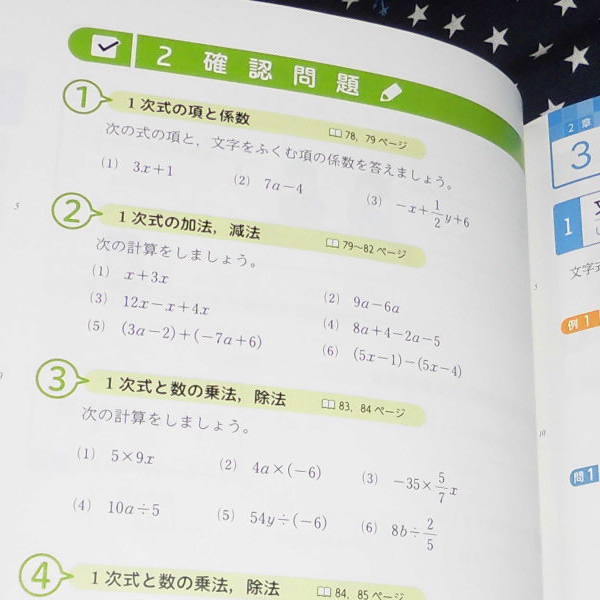 2 確認問題
1 1次式の項と係数 78, 79 ページ
次の式の項と，文字をふくむ項の係数を答えましょう。
(1) 3x+1 (2) 7a−4 (3) −x+1/2 y+6
2 1次式の加法，減法 79〜82 ページ
次の計算をしましょう。
(1) x+3x (2) 9a−6a
(3) 12x−x+4x (4) 8a+4−2a−5
(5) (3a−2)+(−7a+6) (6) (5x−1)−(5x−4)
3 1次式と数の乗法，除法 83, 84 ページ
次の計算をしましょう。
(1) 5×9x (2) 4a×(−6) (3) −35×5/7 x
(4) 10a÷5 (5) 54y÷(−6) (6) 8b÷2/5
4 1次式と数の乗法，除法 84, 85 ページ
5
2章
3
1
文字
5
例 1
10
問 1